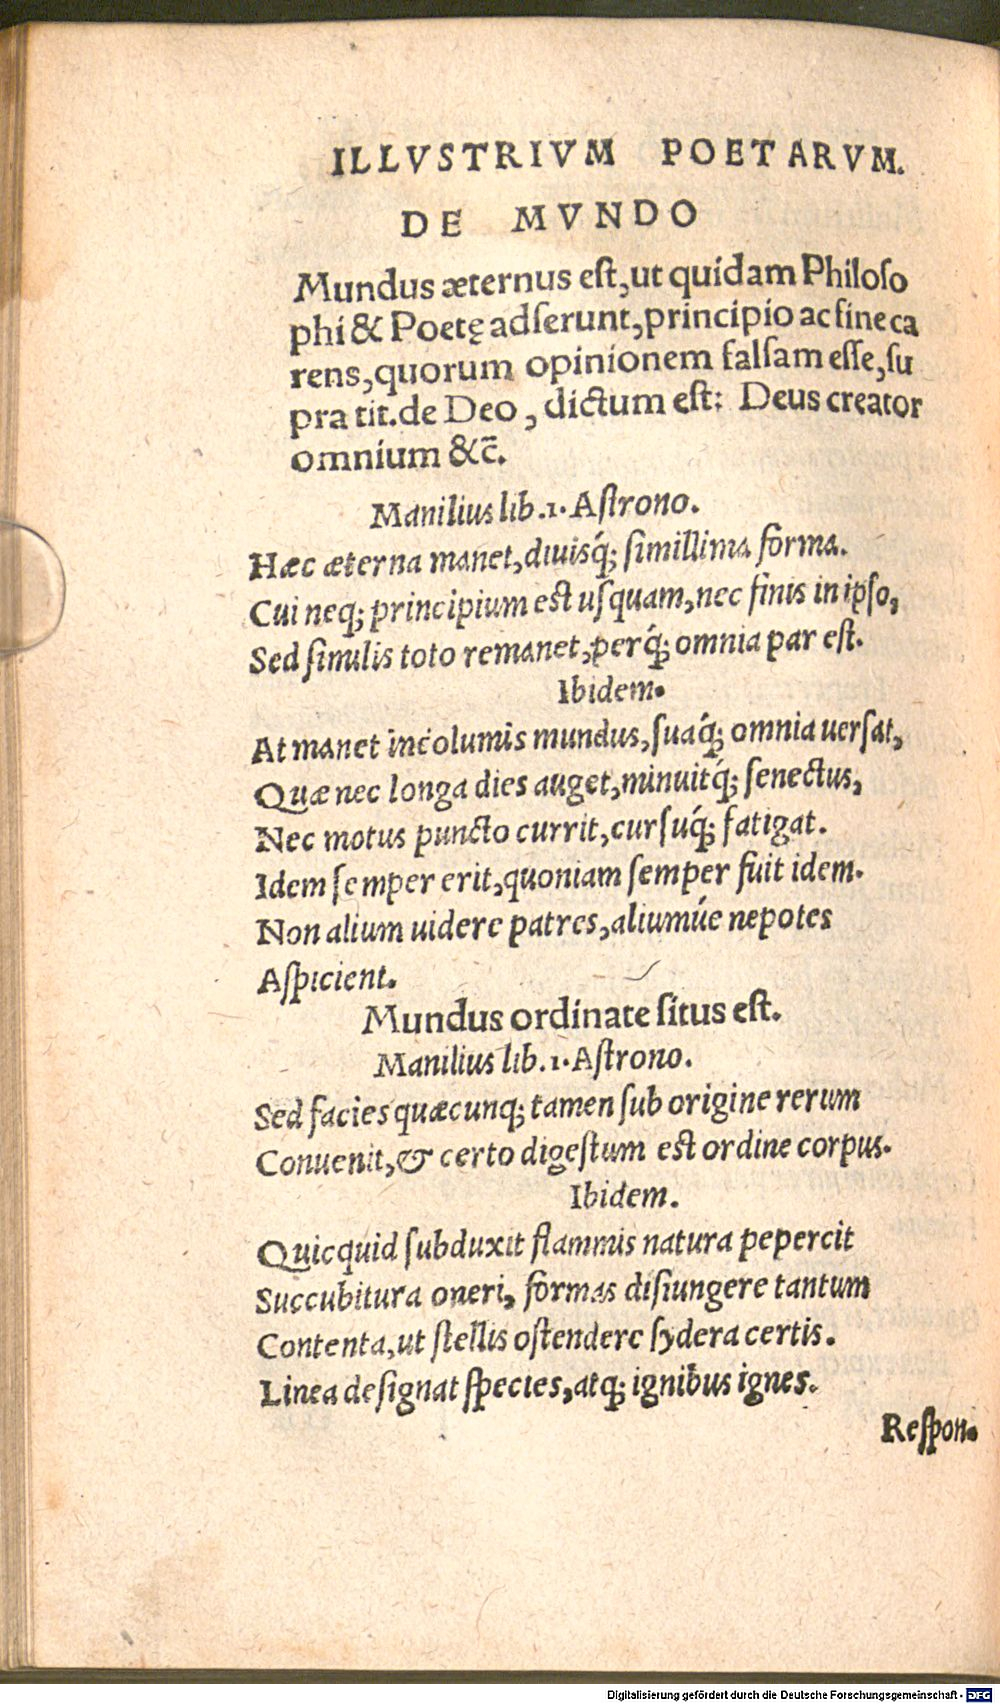 ILLVSTRIVM POETARVM.
DE MVNDO
Mundus æternus est, ut quidam Philoso
phi & Poetę adserunt, principio ac fine ca
rens, quorum opinionem falsam esse, su
pra tit. de Deo, dictum est: Deus creator
omnium &c̄.
Manilius lib. 1. Astrono.
Hæc æterna manet, diuisq́; simillima forma.
Cui neq; principium est usquam, nec finis in ipso,
Sed similis toto remanet, perq́; omnia par est.
Ibidem.
At manet incolumis mundus, suaq́; omnia uersat,
Quæ nec longa dies auget, minuitq́; senectus,
Nec motus puncto currit, cursuq́; fatigat.
Idem semper erit, quoniam semper fuit idem.
Non alium uidere patres, aliumúe nepotes
Aspicient.
Mundus ordinate situs est.
Manilius lib. 1. Astrono.
Sed facies quæcunq; tamen sub origine rerum
Conuenit, & certo digestum est ordine corpus.
Ibidem.
Quicquid subduxit flammis natura pepercit
Succubitura oneri, formas disiungere tantum
Contenta, ut stellis ostendere sydera certis.
Linea designat species, atq; ignibus ignes.
Respon.
Digitalisierung gefördert durch die Deutsche Forschungsgemeinschaft - DFG